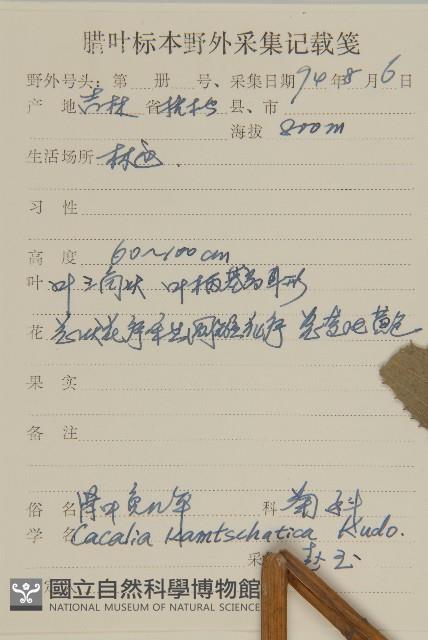 腊叶标本野外采集记载笺
野外号头：第 册 号、采集日期94年8月6日
产 地 吉林 省 县、市
海拔 800m
生活场所 林边.
习 性
高 度 60~100cm
叶 叶三角状 叶柄基部耳形
花 总状花序 花冠黄色
果 实
备 注
俗 名 科 菊科
学 名 Cacalia Kamtschatica Kudo.
采 赵玉
國立自然科學博物館
NATIONAL MUSEUM OF NATURAL SCIENCE